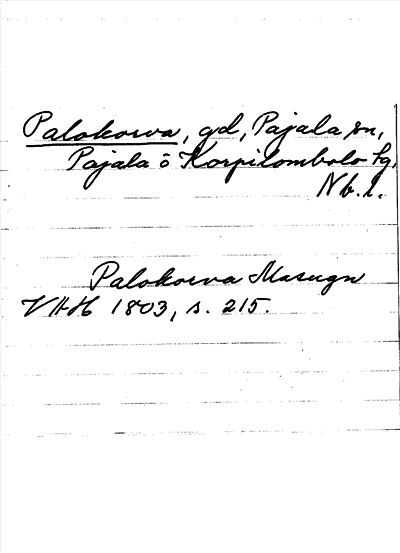 Palokorva, gd, Pajala sn,
Pajala o Korpilombolo tg,
Nb. l.
Palokorva Masugn
VHH 1803, s. 215.